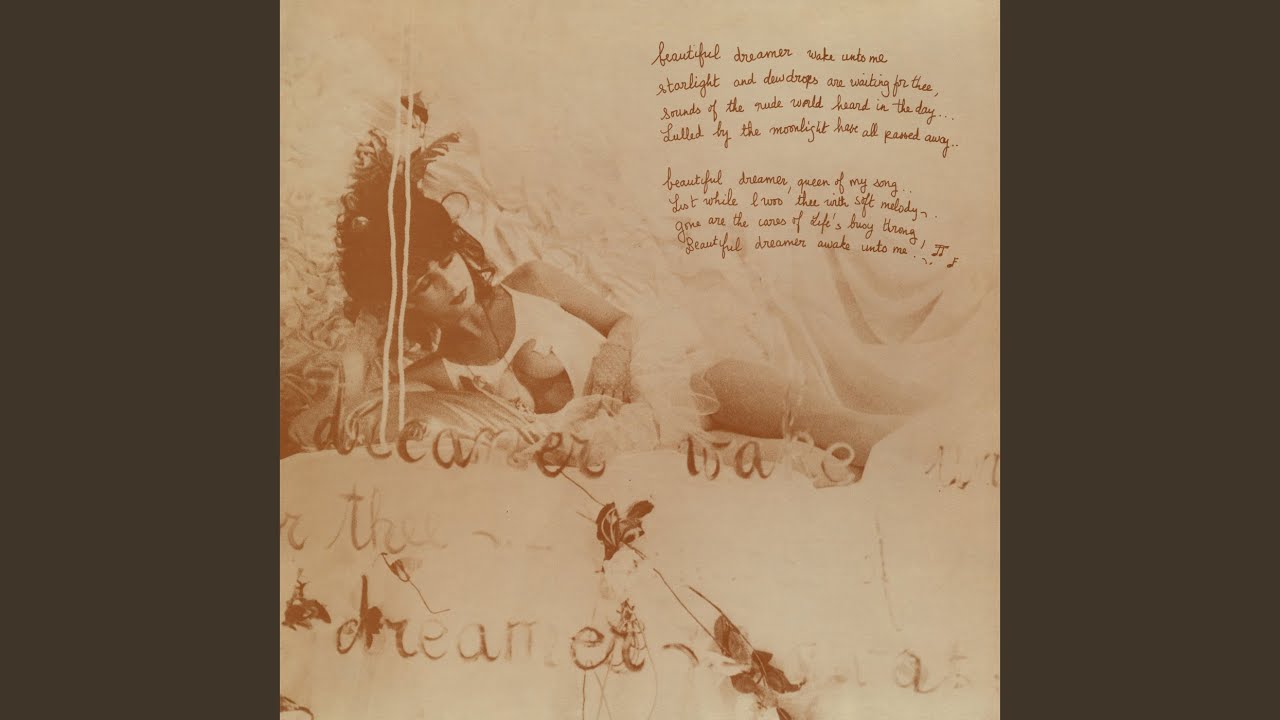 beautiful dreamer wake unto me
starlight and dewdrops are waiting for thee,
sounds of the rude world heard in the day...
Lulled by the moonlight have all passed away..
beautiful dreamer, queen of my song..
List while I woo thee with soft melody
gone are the cares of Life's busy throng,
Beautiful dreamer awake unto me..
dreamer wake un
r thee
dreamer